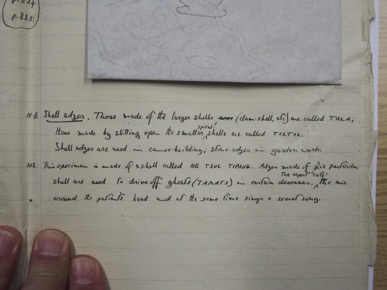 p.825
N.B. Shell adzes. Those made of the larger shells (clam shell, etc) are called TALA;
those made by slitting open the smaller spiral shells are called
Shell adzes are used in canoe-building; stone adzes in garden work.
102. This specimen is made of a shell called NG TSUL TIPANG. Adzes made of this particular
shell are used to drive off ghosts (TAMATS) in certain diseases. The expert 'cuts' the air
around the patients head and at the same time sings a secret song.